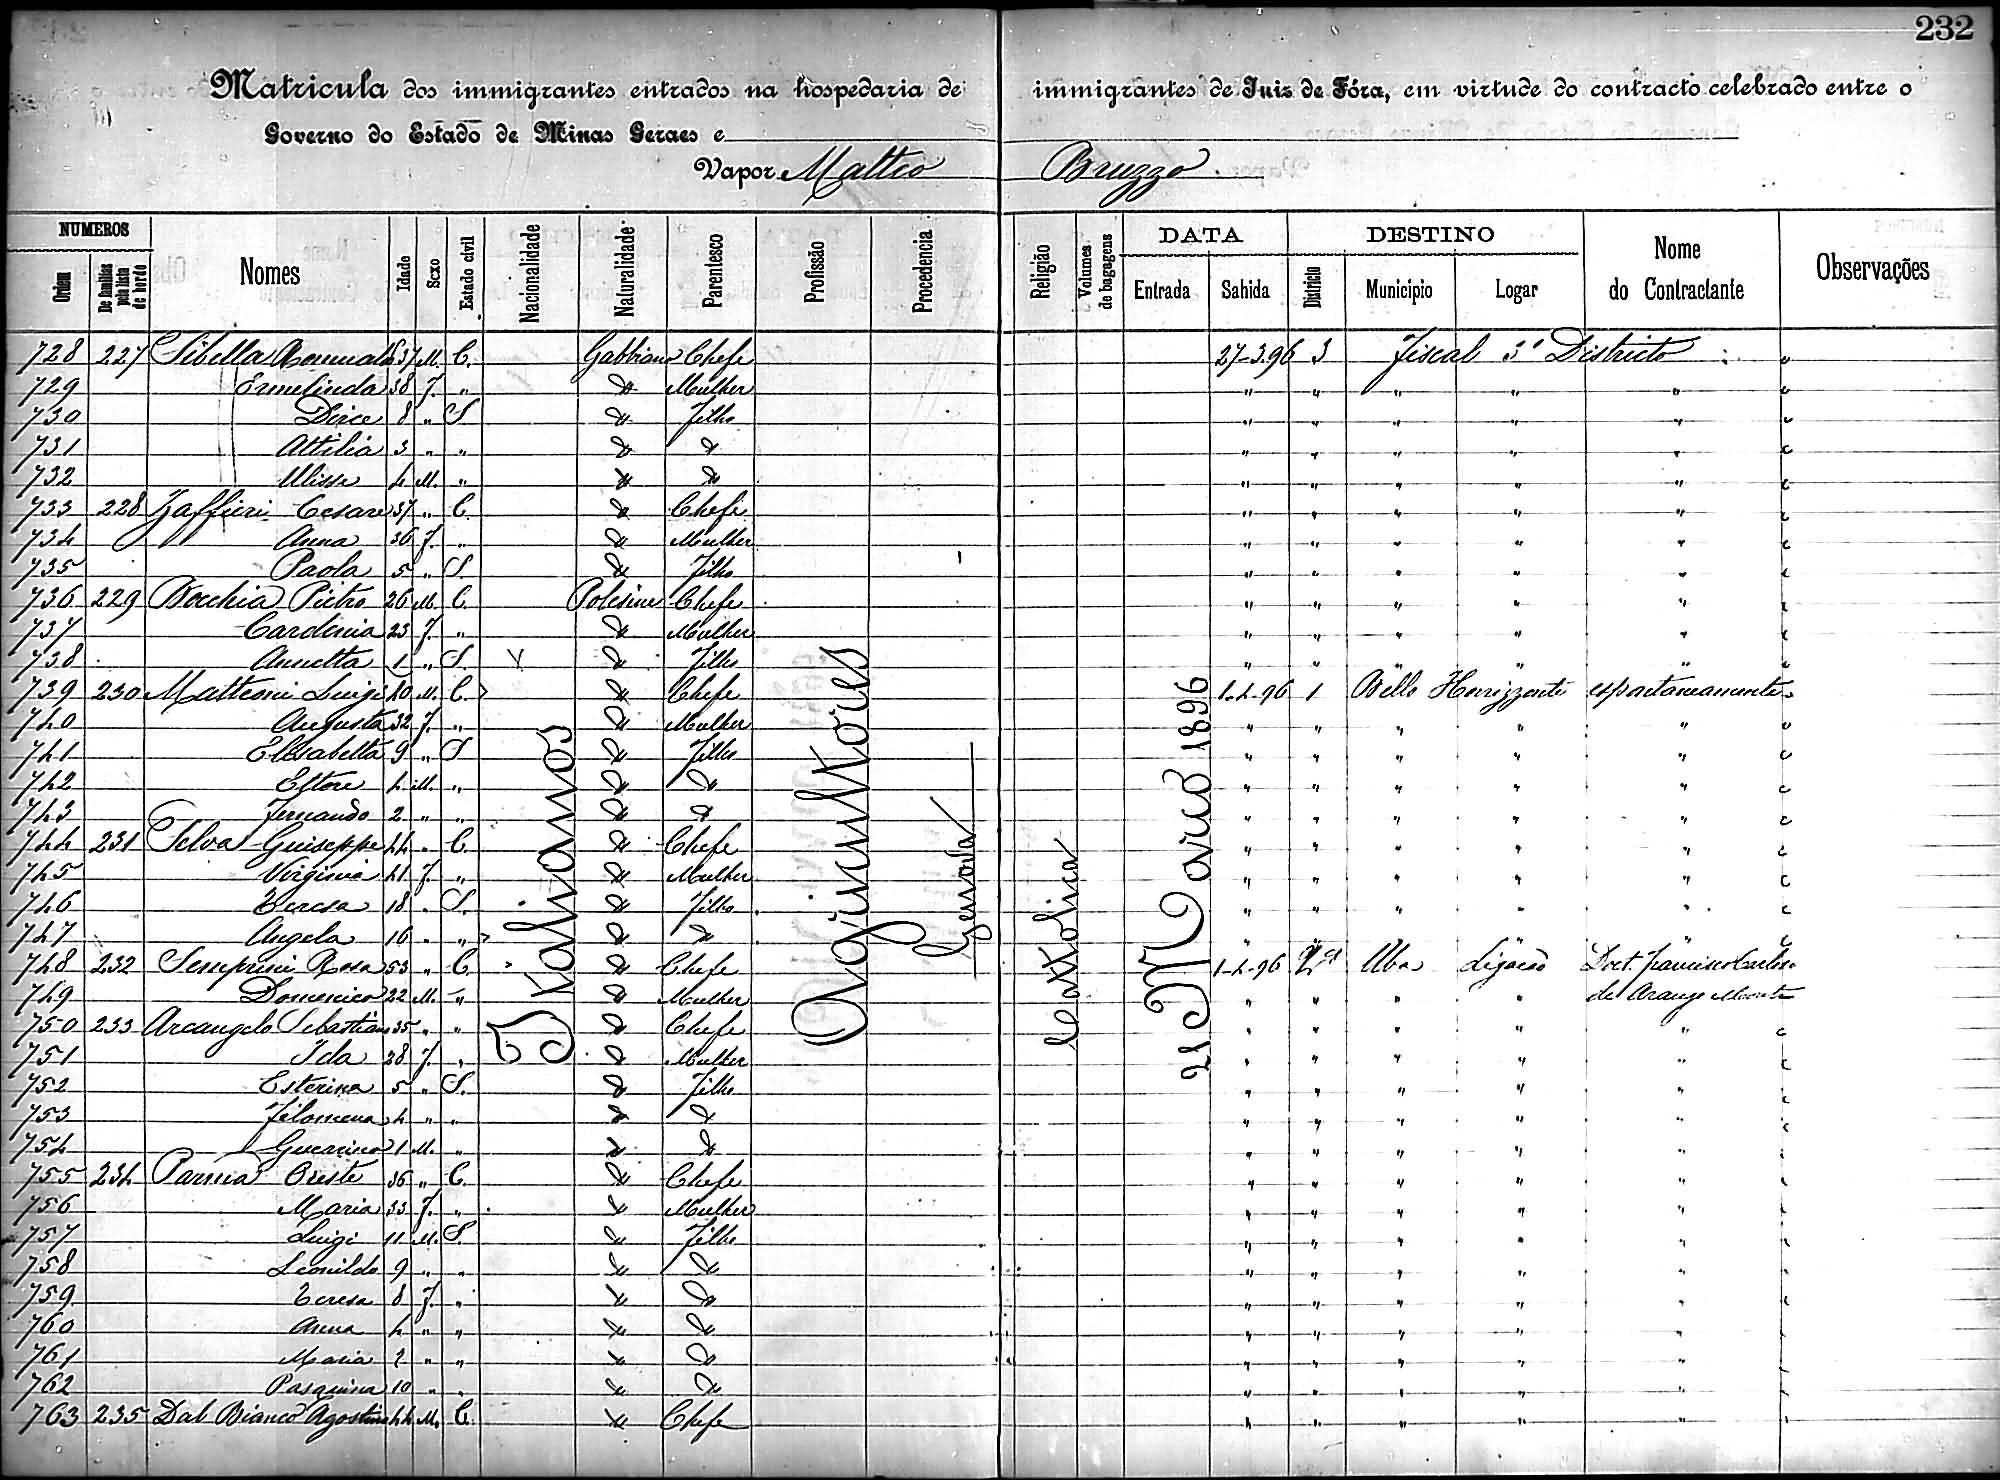 232
Matricula dos immigrantes entrados na hospedaria de immigrantes de Juiz de Fóra, em virtude do contracto celebrado entre o
Governo do Estado de Minas Geraes e
Vapor Matteo Bruzzo
NUMEROS
Ordem
De familias pela lista de bordo
Nomes
Idade
Sexo
Estado civil
Nacionalidade
Naturalidade
Parentesco
Profissão
Procedencia
Religião
Volumes de bagagens
DATA
Entrada
Sahida
DESTINO
Districto
Municipio
Logar
Nome do Contractante
Observações
Italianos
Agricultores
Genova
Cattolica
21 Março 1896
728 227 Sibella Romualdo 37 M. C. Gabbiano Chefe 27-3.96 3 Fiscal 3º Districto "
729 Ermelinda 38 F. " " Mulher " " " " " "
730 Dirce 8 " S " Filho " " " " " "
731 Attilia 3 " " " " " " " " " "
732 Ulisse 4 M. " " " " " " " " "
733 228 Zaffieri Cesare 37 " C. " Chefe " " " " " "
734 Anna 36 F. " " Mulher " " " " " "
735 Paola 5 " S. " Filho " " " " " "
736 229 Bocchia Pietro 26 M. C. Polesine Chefe " " " " " "
737 Cardenia 23 F. " " Mulher " " " " " "
738 Annetta 1 " S. " Filho " " " " "
739 230 Matteoni Luigi 40 M. C. " Chefe 1-4-96 1 Bello Horizzonte espontaneamente
740 Augusta 32 F. " " Mulher " " " " " "
741 Elisabetta 9 " S " Filho " " " " " "
742 Ettore 4 M. " " " " " " " " "
743 Fernando 2 " " " " " " " " " "
744 231 Selva Guiseppe 44 " C. " Chefe " " " " " "
745 Virginia 41 F. " " Mulher " " " " " "
746 Teresa 18 " S. " Filho " " " " " "
747 Angela 16 " " " " " " " " " "
748 232 Semprini Rosa 53 " C. " Chefe 1-4-96 2º Uba Ligação Doct. Francisco Carlos
749 Domenico 22 M. " " Mulher " " " " de Araujo
750 233 Arcangelo Sebastiano 35 " " " Chefe " " " " " "
751 Ida 28 F. " " Mulher " " " " " "
752 Esterina 5 " S. " Filho " " " " " "
753 Filomena 4 " " " " " " " " " "
754 Guerrino 1 M. " " " " " " " " "
755 234 Parma Oreste 36 " C. " Chefe " " " " " "
756 Maria 33 F. " " Mulher " " " " " "
757 Luigi 11 M. S. " Filho " " " " " "
758 Leonildo 9 " " " " " " " " " "
759 Teresa 8 F. " " " " " " " " "
760 Anna 4 " " " " " " " " " "
761 Maria 2 " " " " " " " " " "
762 Pasquina 10 " " " " " " " " " "
763 235 Dal Bianco Agostino 44 M. C. " Chefe " " " " "